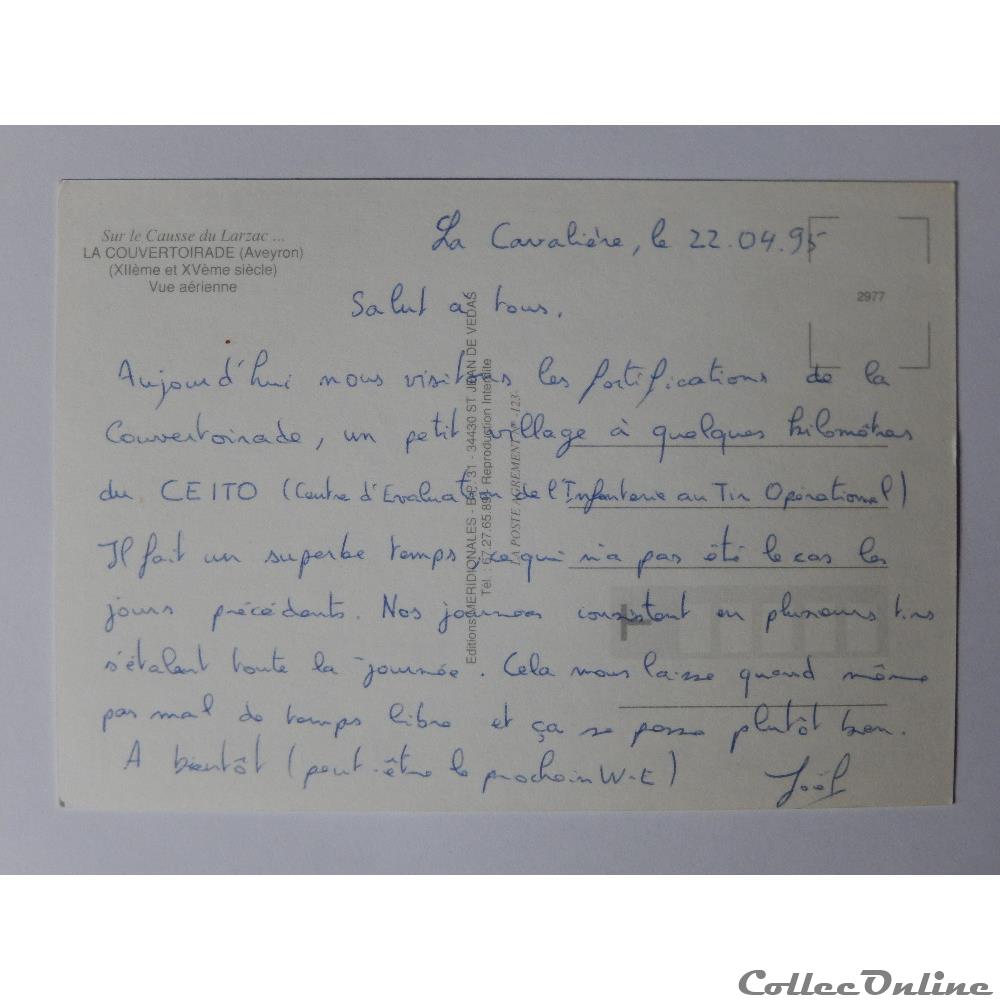 Sur le Causse du Larzac ...
LA COUVERTOIRADE (Aveyron)
(XIIème et XVème siècle)
Vue aérienne
La Cavalière, le 22.04.95
2977
Salut à tous,
Aujourd'hui nous visitons les fortifications de la
Couvertoirade, un petit village à quelques kilomètres
du CEITO (Centre d'Evaluation de l'Infanterie au Tir Opérationnel)
Il fait un superbe temps, ce qui n'a pas été le cas les
jours précédents. Nos journées consistent en plusieurs tirs
s'étalent toute la journée. Cela nous laisse quand même
pas mal de temps libre et ça se passe plutôt bien.
A bientôt (peut-être le prochain W-E)
Joël
Editions MERIDIONALES - B.P. 31 - 34430 ST JEAN DE VEDAS
Tél. : 67.27.65.89 - Reproduction Interdite
LA POSTE AGREMENT N° -123-
CollecOnline